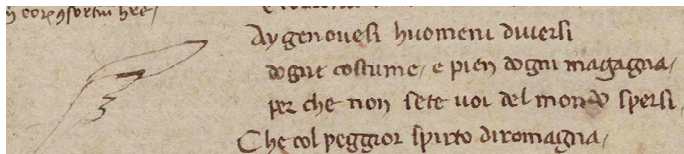 Ay genouesi huomeni diuersi
dogne costume / e pien dogni magagna /
per che non sete uoi del mondo spersi
Che col peggior spirto diromagna /